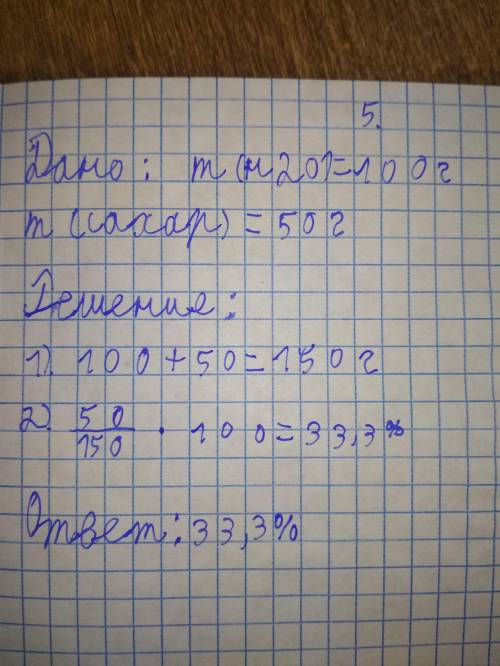 5.
Дано: m(н20)=100г
m(сахар)=50г
Решения:
1). 100+50=150г
2). 50/150 · 100=33,3%
Ответ: 33,3%